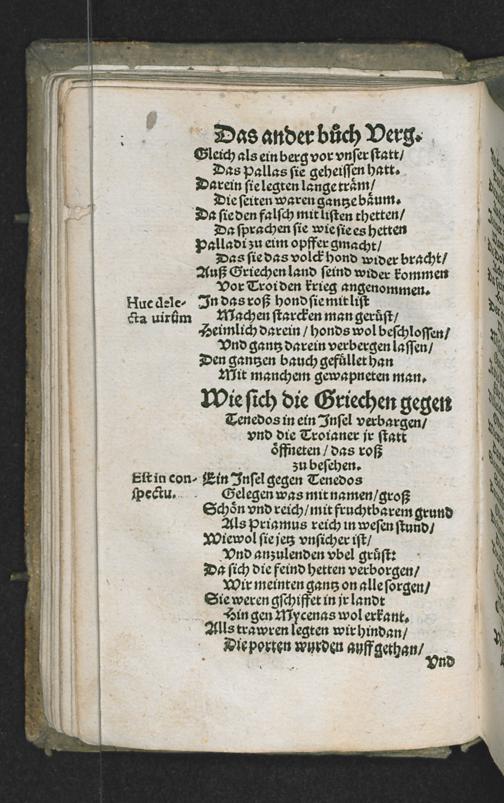 Das ander bůch Verg.
Gleich als ein berg vor vnser statt/
Das Pallas sie geheissen hatt.
Darein sie legten lange träm/
Die seiten waren gantze bäum.
Da sie den falsch mit listen thetten/
Da sprachen sie wie sie es hetten
Palladi zu eim opffer gmacht/
Das sie das volck hond wider bracht/
Auß Griechen land seind wider kommen
Vor Troi den krieg angenommen.
Huc dele-
cta uirûm
In das roß hond sie mit list
Machen starcken man gerüst/
Heimlich darein/ honds wol beschlossen/
Vnd gantz darein verbergen lassen/
Den gantzen bauch gefüllet han
Mit manchem gewapneten man.
Wie sich die Griechen gegen
Tenedos in ein Insel verbargen/
vnd die Troianer jr statt
öffneten/ das roß
zu besehen.
Est in con-
spectu.
Ein Insel gegen Tenedos
Gelegen was mit namen/ groß
Schön vnd reich/ mit fruchtbarem grund
Als Priamus reich in wesen stund/
Wiewol sie jetz vnsicher ist/
Vnd anzulenden vbel grüst:
Da sich die feind hetten verborgen/
Wir meinten gantz on alle sorgen/
Sie weren gschiffet in jr landt
Hin gen Mycenas wol erkant.
Alls trawren legten wir hindan/
Die porten wurden auff gethan/
Vnd